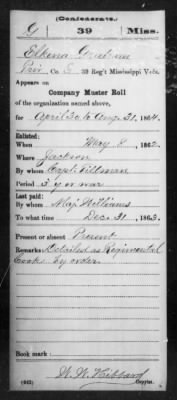 (Confederate.)
G 39 Miss.
Elkana Graham
Priv Co. G 39 Reg't Mississippi Vols.
Appears on
Company Muster Roll
of the organization named above,
for April 30 to Aug. 31, 1864.
Enlisted:
When May 8, 1862
Where Jackson
By whom Capt. Tillman
Period 3 y or war
Last paid:
By whom Maj Williams
To what time Dec. 31, 1863.
Present or absent Present
Remarks: Detailed as Regimental
Cook by order
Book mark:
(642) W. W. Hibbard
Copyist.